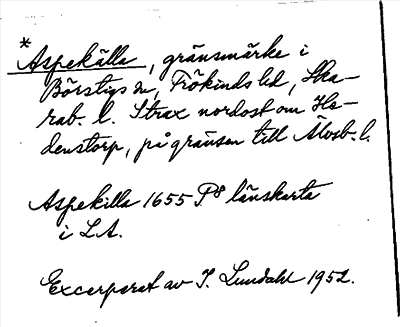 * Aspekälla, gränsmärke i
Börstigs sn, Frökinds hd, Ska-
rab. l. Strax nordost om He-
denstorp, på gränsen till Älvsb. l.
Aspekilla 1655 P8 länskarta
i LA.
Excerperat av I. Lundahl 1952.